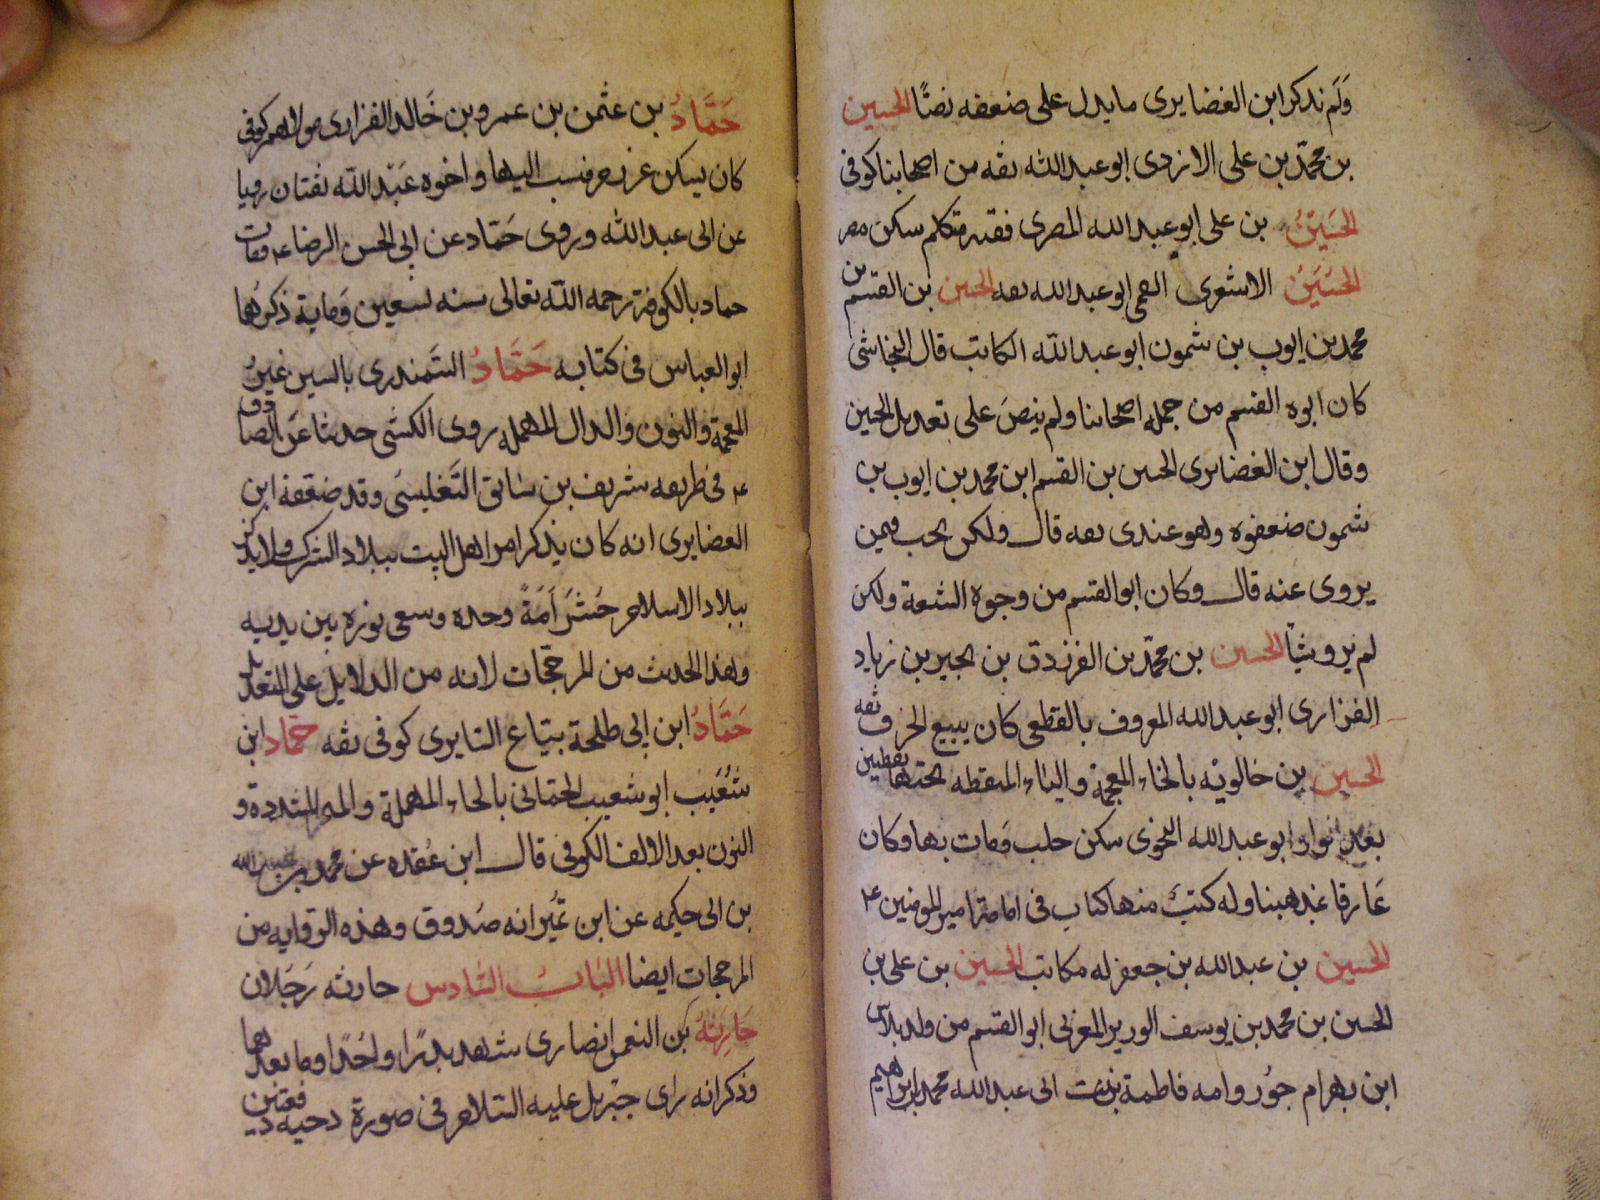 ولم نذكر ابن الغضايرى ما يدل على ضعفه نصًا الحسين
بن محمد بن على الازدى ابو عبد الله ثقه من اصحابنا كوفى
الحسين بن على ابو عبد الله المصرى فقيه متكلم سكن مصر
الحسين الاشعرى القمى ابو عبد الله ثقه الحسين بن القسم بن
محمد بن ايوب بن شمون ابو عبد الله الكاتب قال النجاشى
كان ابوه القسم من جمله اصحابنا ولم ينص على تعديل الحسين
وقال ابن الغضائرى الحسين بن القسم ابن محمد بن ايوب بن
شمون ضعفوه وهو عندى ثقه قال ولكن بحب فيمن
يروى عنه قال وكان ابو القسم من وجوه الشيعة ولكن
لم يرو شيأ الحسين بن محمد بن الفرزدق بن بجير بن زياد
الفزارى ابو عبد الله المعروف بالقطعى كان يبيع الخرق ثقه
الحسين بن خالويه بالخاء المعجمة والياء المنقطه تحتها نقطين
بعد الواو ابو عبد الله النحوى سكن حلب ومات بها وكان
عارفا بمذهبنا وله كتب منها كتاب فى امامة امير المومنين ع
الحسين بن عبد الله بن جعفر له مكاتب الحسين بن على بن
الحسين بن محمد بن يوسف الوزير المغربى ابو القسم من ولد بلاس
ابن بهرام جور وامه فاطمة بنت ابى عبد الله محمد بن ابراهيم
حَمَّادُ بن عثمن بن عمرو بن خالد الفزارى مولاهم كوفى
كان يسكن عرزم فنسب اليها واخوه عبد الله ثقتان رويا
عن ابى عبد الله وروى حمّاد عن ابى الحسن الرضا ع ومات
حماد بالكوفة رحمه الله تعالى سنه تسعين ومايه ذكرهما
ابو العباس فى كتابه حَمَّادُ السَّمندرى بالسين غير
المعجمة والنون والدال المهملة روى الكشى حديثا عن الصادق
ع فى طريقه شريف بن سابق التفليسى وقد ضعفه ابن
الغضايرى انه كان يذكر امر اهل البيت ببلاد الشرك ولا يذكر
ببلاد الاسلام حُشر اُمَةً وحده وسعى نوره بين يديه
وهذا الحديث من المرجّحات لانه من الدلايل على التعديل
حَمَّادُ ابن ابى طلحة بيّاع السابرى كوفى ثقه حمّاد ابن
شُعَيب ابو شعيب الحمّانى بالحاء المهملة والميم المشددة و
النون بعد الالف الكوفى قال ابن عُقده عن محمد بن عبد الله
بن ابى حكيمه عن ابن نُمَير انه صَدوق وهذه الروايه من
المرجحات ايضا البَابُ السَّادس حارثه رَجُلان
حارثةُ بن النعمن انصارى شهد بدرًا واُحُدًا وما بعدهما
وذكر انه راى جبريل عليه السلام فى صورة دحيه دفعتين